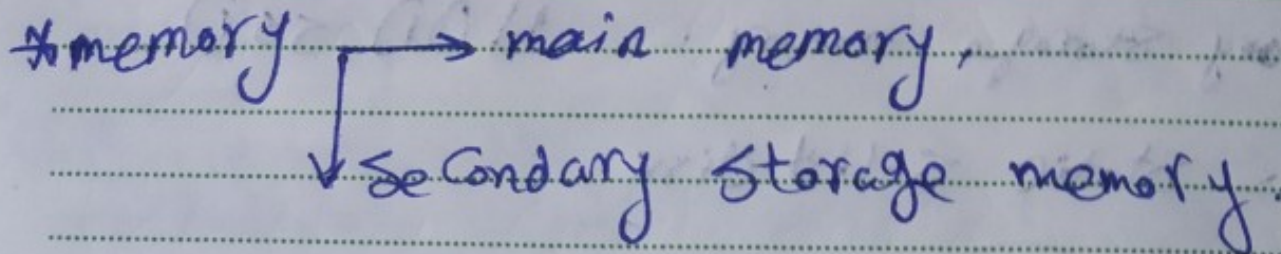 *memory → main memory.
↓ Secondary Storage memory.